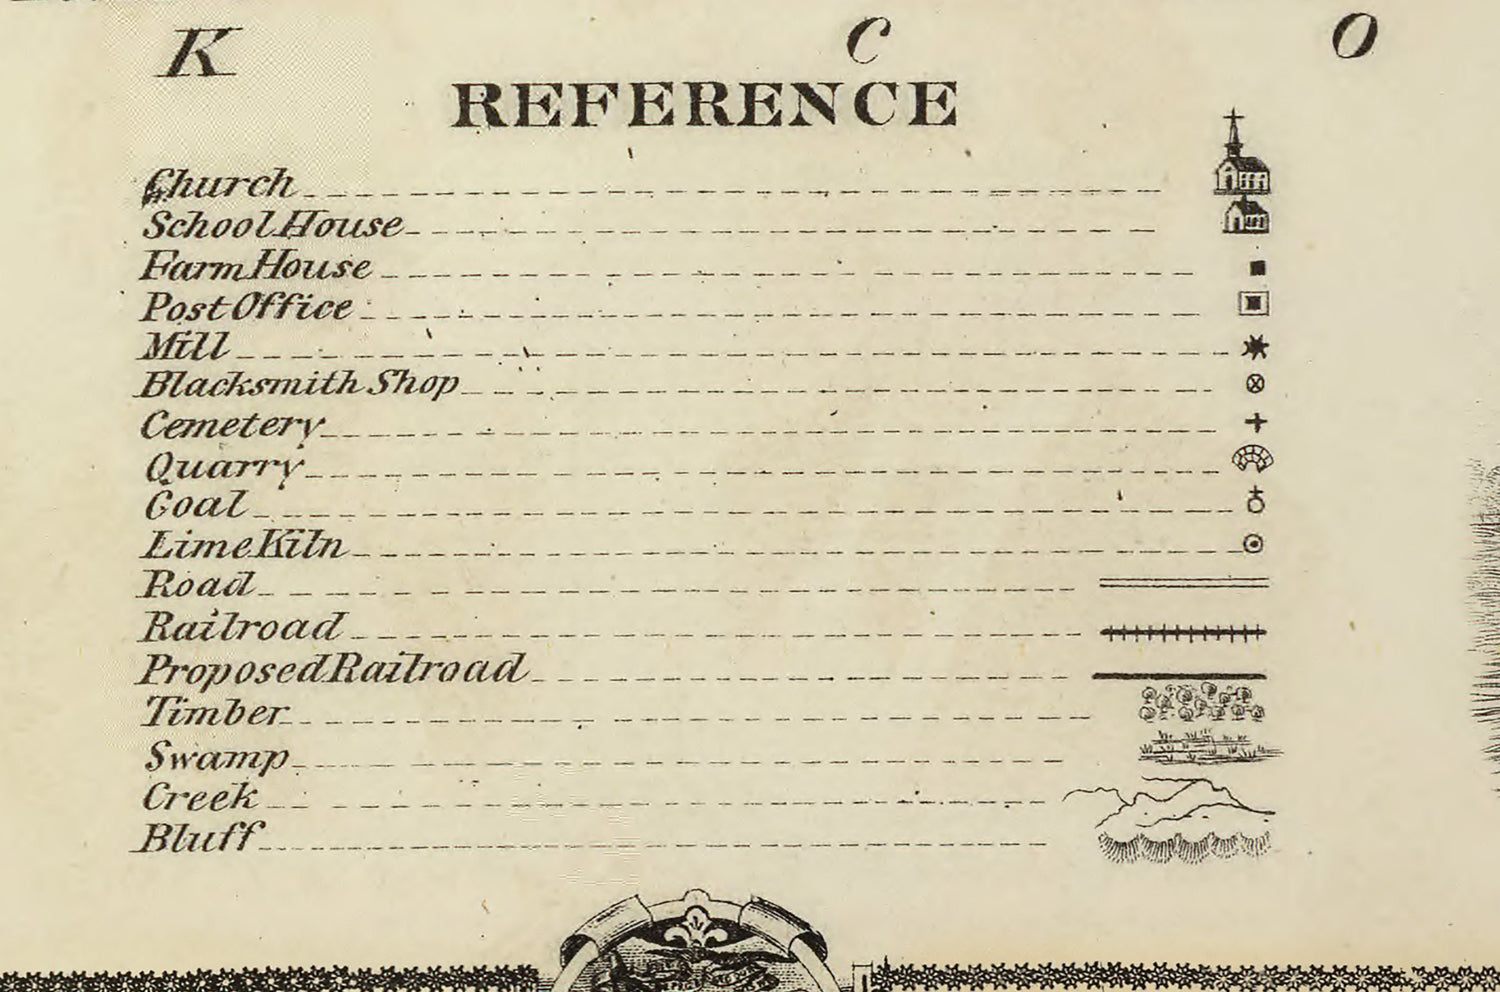 K C O
REFERENCE
Church
School House
Farm House
Post Office
Mill
Blacksmith Shop
Cemetery
Quarry
Coal
Lime Kiln
Road
Railroad
Proposed Railroad
Timber
Swamp
Creek
Bluff